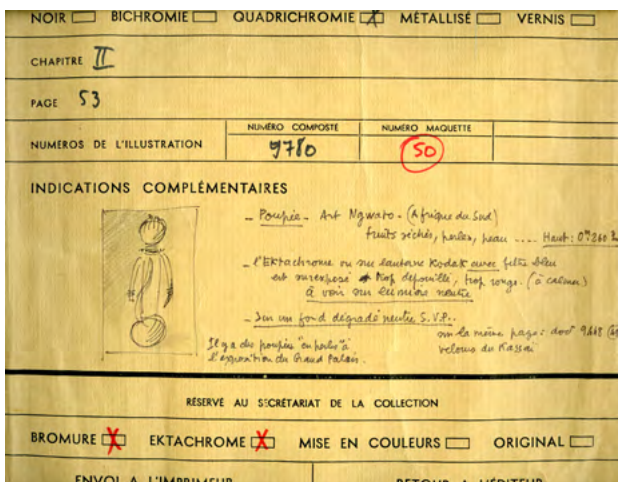 NOIR BICHROMIE QUADRICHROMIE MÉTALLISÉ VERNIS
CHAPITRE II
PAGE 53
NUMÉRO COMPOSTÉ NUMÉRO MAQUETTE
NUMÉROS DE L'ILLUSTRATION 9780 50
INDICATIONS COMPLÉMENTAIRES
- Poupée - Art Ngwato - (Afrique du Sud)
fruits séchés, perles, peau .... Haut: 0m260
- l'Ektachrome vu sur lanterne Kodak avec filtre bleu
est surexposé trop dépouillé, trop rouge. (à calmer)
à voir sur lumière neutre
- Sur un fond dégradé neutre S.V.P..
sur la même page: doct 9468
velours du Kassaï
Il y a des poupées "en perles" à
l'exposition du Grand Palais.
RÉSERVÉ AU SECRÉTARIAT DE LA COLLECTION
BROMURE EKTACHROME MISE EN COULEURS ORIGINAL
ENVOI A L'IMPRIMEUR RETOUR A L'ÉDITEUR